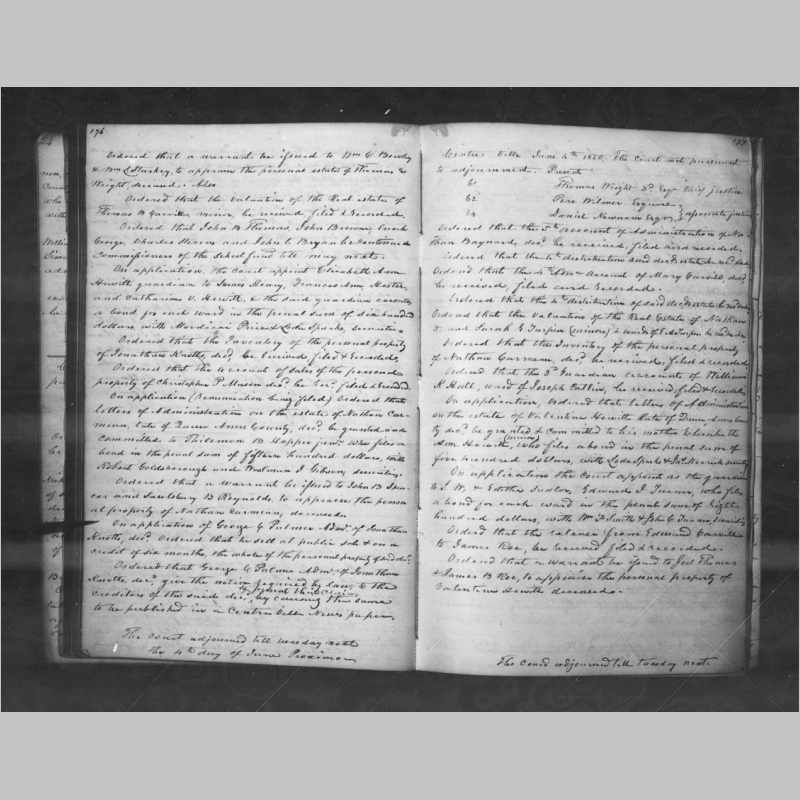 176
Ordered that a warrant be issued to Wm C Bowdy
& Wm to appraise the personal estate of Thomas
Wright deceased. Also
Ordered that the valuation of the Real estate of
Thomas B minor, be received, filed & Recorded.
Ordered that John B Thomas, John Brown, Enoch
George, Charles and John C Bryan be Continued
Commissioners of the school fund till may next.
On application, the Court appoint Elizabeth Ann
Hewitt guardian to James Henry, Frances Ann Hester,
and Catharine V. Hewitt, & the said guardian executes
a bond for each ward in the penal sum of six hundred
dollars with Mordecai Price & Lodn Sparks, securities
Ordered that the Inventory of the personal property
of Jonathan Knotts, decd. be Received, filed & Recorded.
Ordered that the account of Sales of the personal
property of Christopher P. decd. be Recd. filed & Record
On application (Renunciation being filed) Ordered that
letters of Administration on the estate of Nathan Car-
mean, late of Queen Anns County, decd. be granted and
committed to Philemon B. Hopper junr. Who files a
bond in the penal sum of fifteen hundred dollars, with
Robert Goldsborough and Woolman J Gibson, security.
Ordered that a warrant be issued to John B Spen-
cer and Saulsbury B Reynolds, to appraise the person
al property of Nathan Carmean, deceased.
On application of George G Palmer Admr. of Jonathan
Knotts, decd. Ordered that he sell at public sale & on a
credit of six months, the whole of the personal property of said decd.
Ordered that George G Palmer Admr. of Jonathan
Knotts decd. give the notice required by law, to the
creditors of the said decd. by causing the same
to be published in a Centre Ville News paper
The Court adjourned till tuesday next
the 4th day of June Proximo
177
Centre Ville June 4th 1850. The Court met pursuant
to adjournment. Present
Thomas Wright 3d Esqr Chief Justice
Pere Wilmer Esquire
Daniel Newnam Esqr associate justices
Ordered that the account of Administration of Na-
than Baynard, decd. be received, filed and recorded.
Ordered that the distribution said decd. estate be
Ordered that the 4th Admn account of Mary decd
be received, filed and Recorded.
Ordered that the 4th distribution of said decd. estate be
Ordered that the valuation of the Real Estate of Nathan
T. and Sarah E Turpin (minors) & be recorded
Ordered that the Inventory of the personal property
of Nathan Carmean, decd. be received, filed & recorded
Ordered that the 3d Guardian account of William
H. Hall, ward of Joseph be received, filed & recorded.
On application, Ordered that letters of Administration
on the estate of Valentine Hewitt late of Queen Anns Coun
ty decd. be granted & Committed to his mother Elizabeth
Ann Hewitt, Who files a bond in the penal sum of
five hundred dollars, with Lodn Sparks & Jas. Merrick security
On application the Court appoint as the guardian
to S. W. & Editha Tudor, Edward J Turner, who files
a bond for each ward in the penal sum of Eight
hundred dollars, with Wm F Smith & John C Turner, security
Ordered that the release from Edward
to James Roe, be received filed & recorded.
Ordered that a warrant be issued to Joel Thomas
& James B Roe, to appraise the personal property of
Valentine Hewitt deceased.
The Court adjourned till tuesday next.